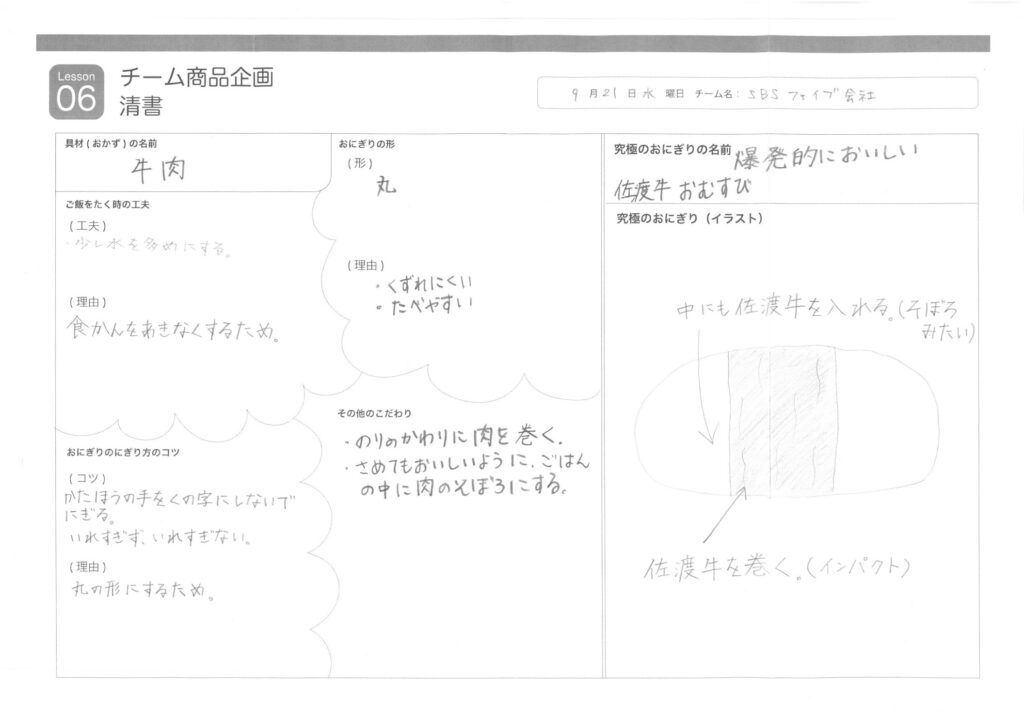 Lesson
06
チーム商品企画
清書
9月21日水曜日 チーム名：SBSファイブ会社
具材(おかず)の名前
牛肉
ご飯をたく時の工夫
(工夫)
・少し水を多めにする。
(理由)
食かんをあきなくするため。
おにぎりのにぎり方のコツ
(コツ)
かたほうの手をくの字にしないで
にぎる。
いれすぎず、いれすぎない。
(理由)
丸の形にするため。
おにぎりの形
(形)
丸
(理由)
・くずれにくい
・たべやすい
その他のこだわり
・のりのかわりに肉を巻く.
・さめてもおいしいように、ごはん
の中に肉のそぼろにする。
究極のおにぎりの名前 爆発的においしい
佐渡牛おむすび
究極のおにぎり（イラスト）
中にも佐渡牛を入れる。(そぼろ
みたい)
佐渡牛を巻く。(インパクト)